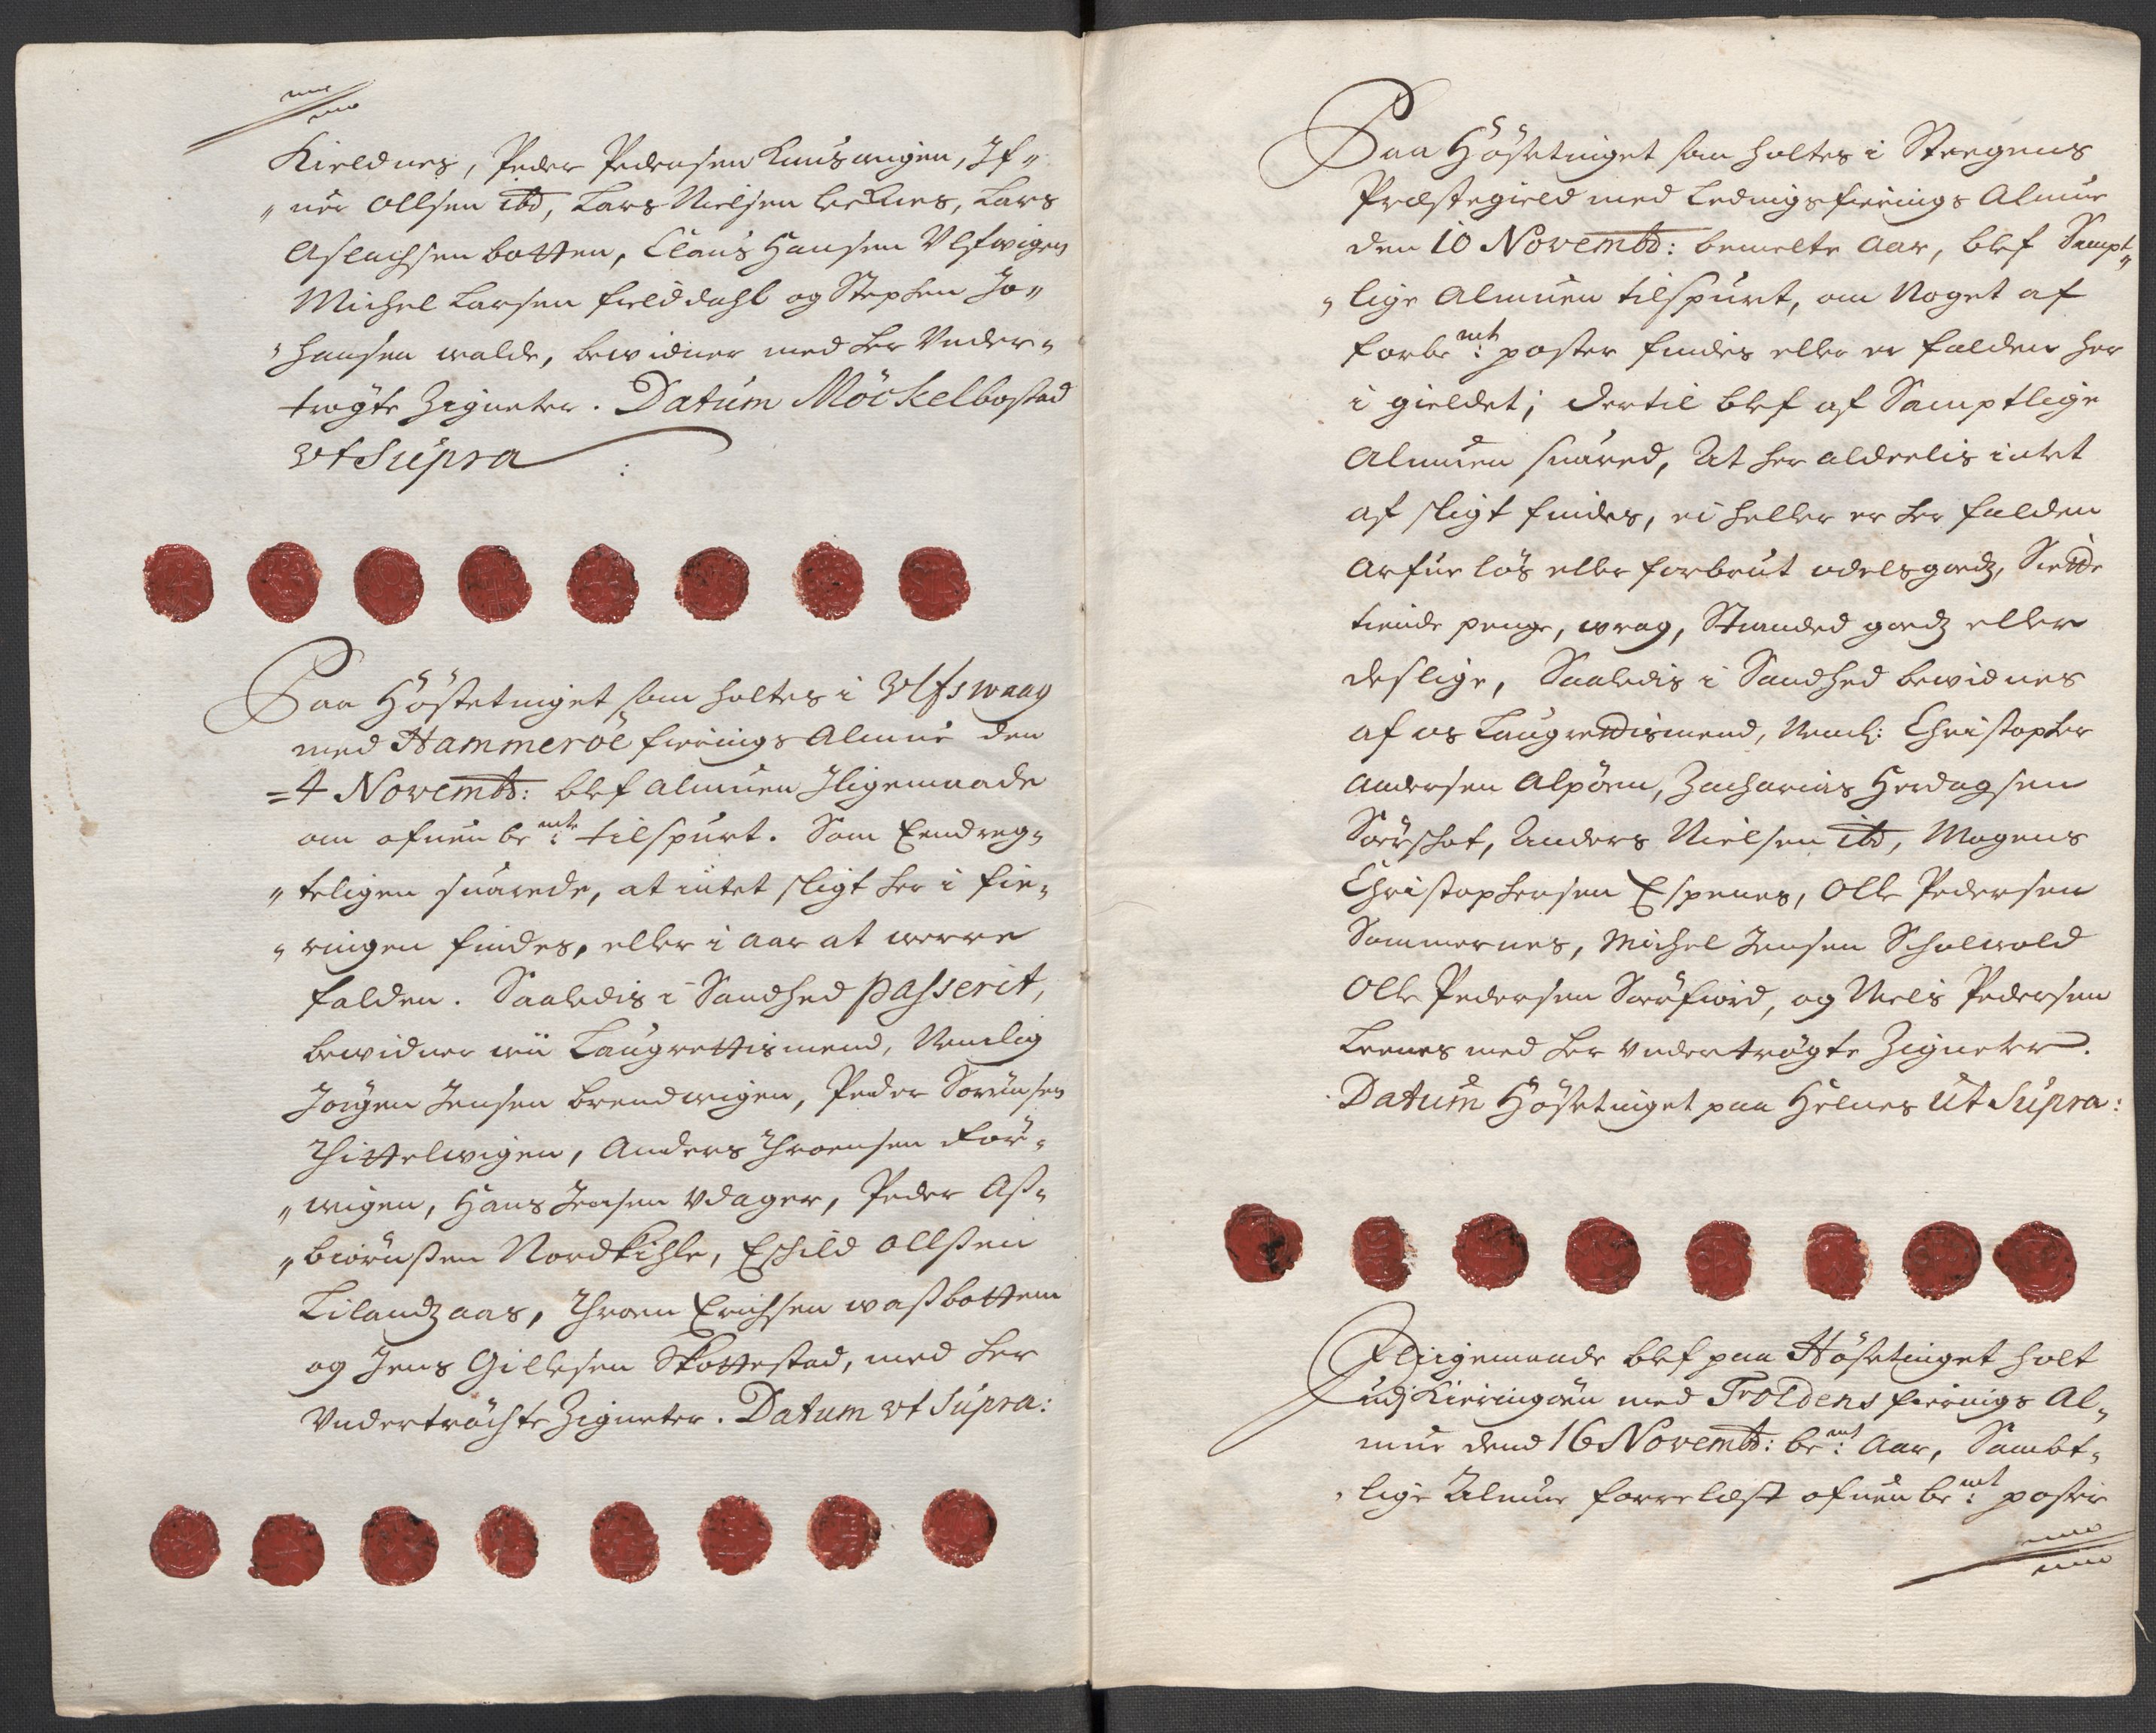 Kieldnes, Peder Pedersen Knuswigen, If„
„uer Ollsen ibd, Lars Nielsen Leknes, Lars
Aslachsen botten, Claus Hansen Ulfwigen
Michel Larsen fielddahl og Stephen Jo„
„hansen walde, bewidner med her Under„
trögte Zigneter. Datum Möckelbostad
ut Supra
Paa Höstetinget som holtes i Ulfswaag
med Hammeröe fierings Almue den
=4 Novembr: blef almuen Iligemaade
om ofuenbemte: tilspurt. Som Eendreg„
„teligen suarede, at intet sligt her i fie„
„ringen findes, eller i aar at werre
falden. Saaledis i Sandhed passerit,
bewidner wii Laugrettismend, Nemlig
Jörgen Jensen brendwigen, Peder Sörensen
Thittelwigen, Anders Thronsen För„
„wigen, Hans Jensen Udager, Peder Aß„
„biörnßen Nordkihle, Eschild Ollßen
Lilandzaas, Throen Erichsen waßbottem
og Jens Gillesen Skottestad, med her
Undertröchte Zigneter. Datum ut Supra:
Paa Höstetinget som holtes i Steegens
Præstegield med Ledingsfierings Almue
den 10 Novembr: bemelte Aar, blef Sampt„
„lige Almuen tilspurt, om Noget af
forbemt: poster findis eller er falden her
i gieldet; dertil blef af Samptlige
Almuen suared, At her alderlis intet
af sligt findes, ei heller er her falden
Arfue löß eller forbrut odelsgodz, Siette
tiende penge, wrag, Stranded godz eller
deslige, Saaledis i Sandhed bewidnes
af os Laugrettismend, Neml: Christopher
Andersen Alpöen, Zacharias Herdagsen
Sörschot, Anders Nielsen ibd, Mogens
Christophersen Espenes, Olle Pedersen
Sommernes, Michel Jensen Scholwold
Olle Pedersen Sörfiord, og Niels Pedersen
Leenes med her undertrögte Zigneter.
Datum Höstetinget paa Helnes ut Supra:
Iliigemaade blef paa Höstetinget holt
udj Kieringöen med Foldens fierings Al„
mue dend 16 Novembr: bemt: Aar, Sambt„
„lige Almue forrelæst ofuenbemt: poster